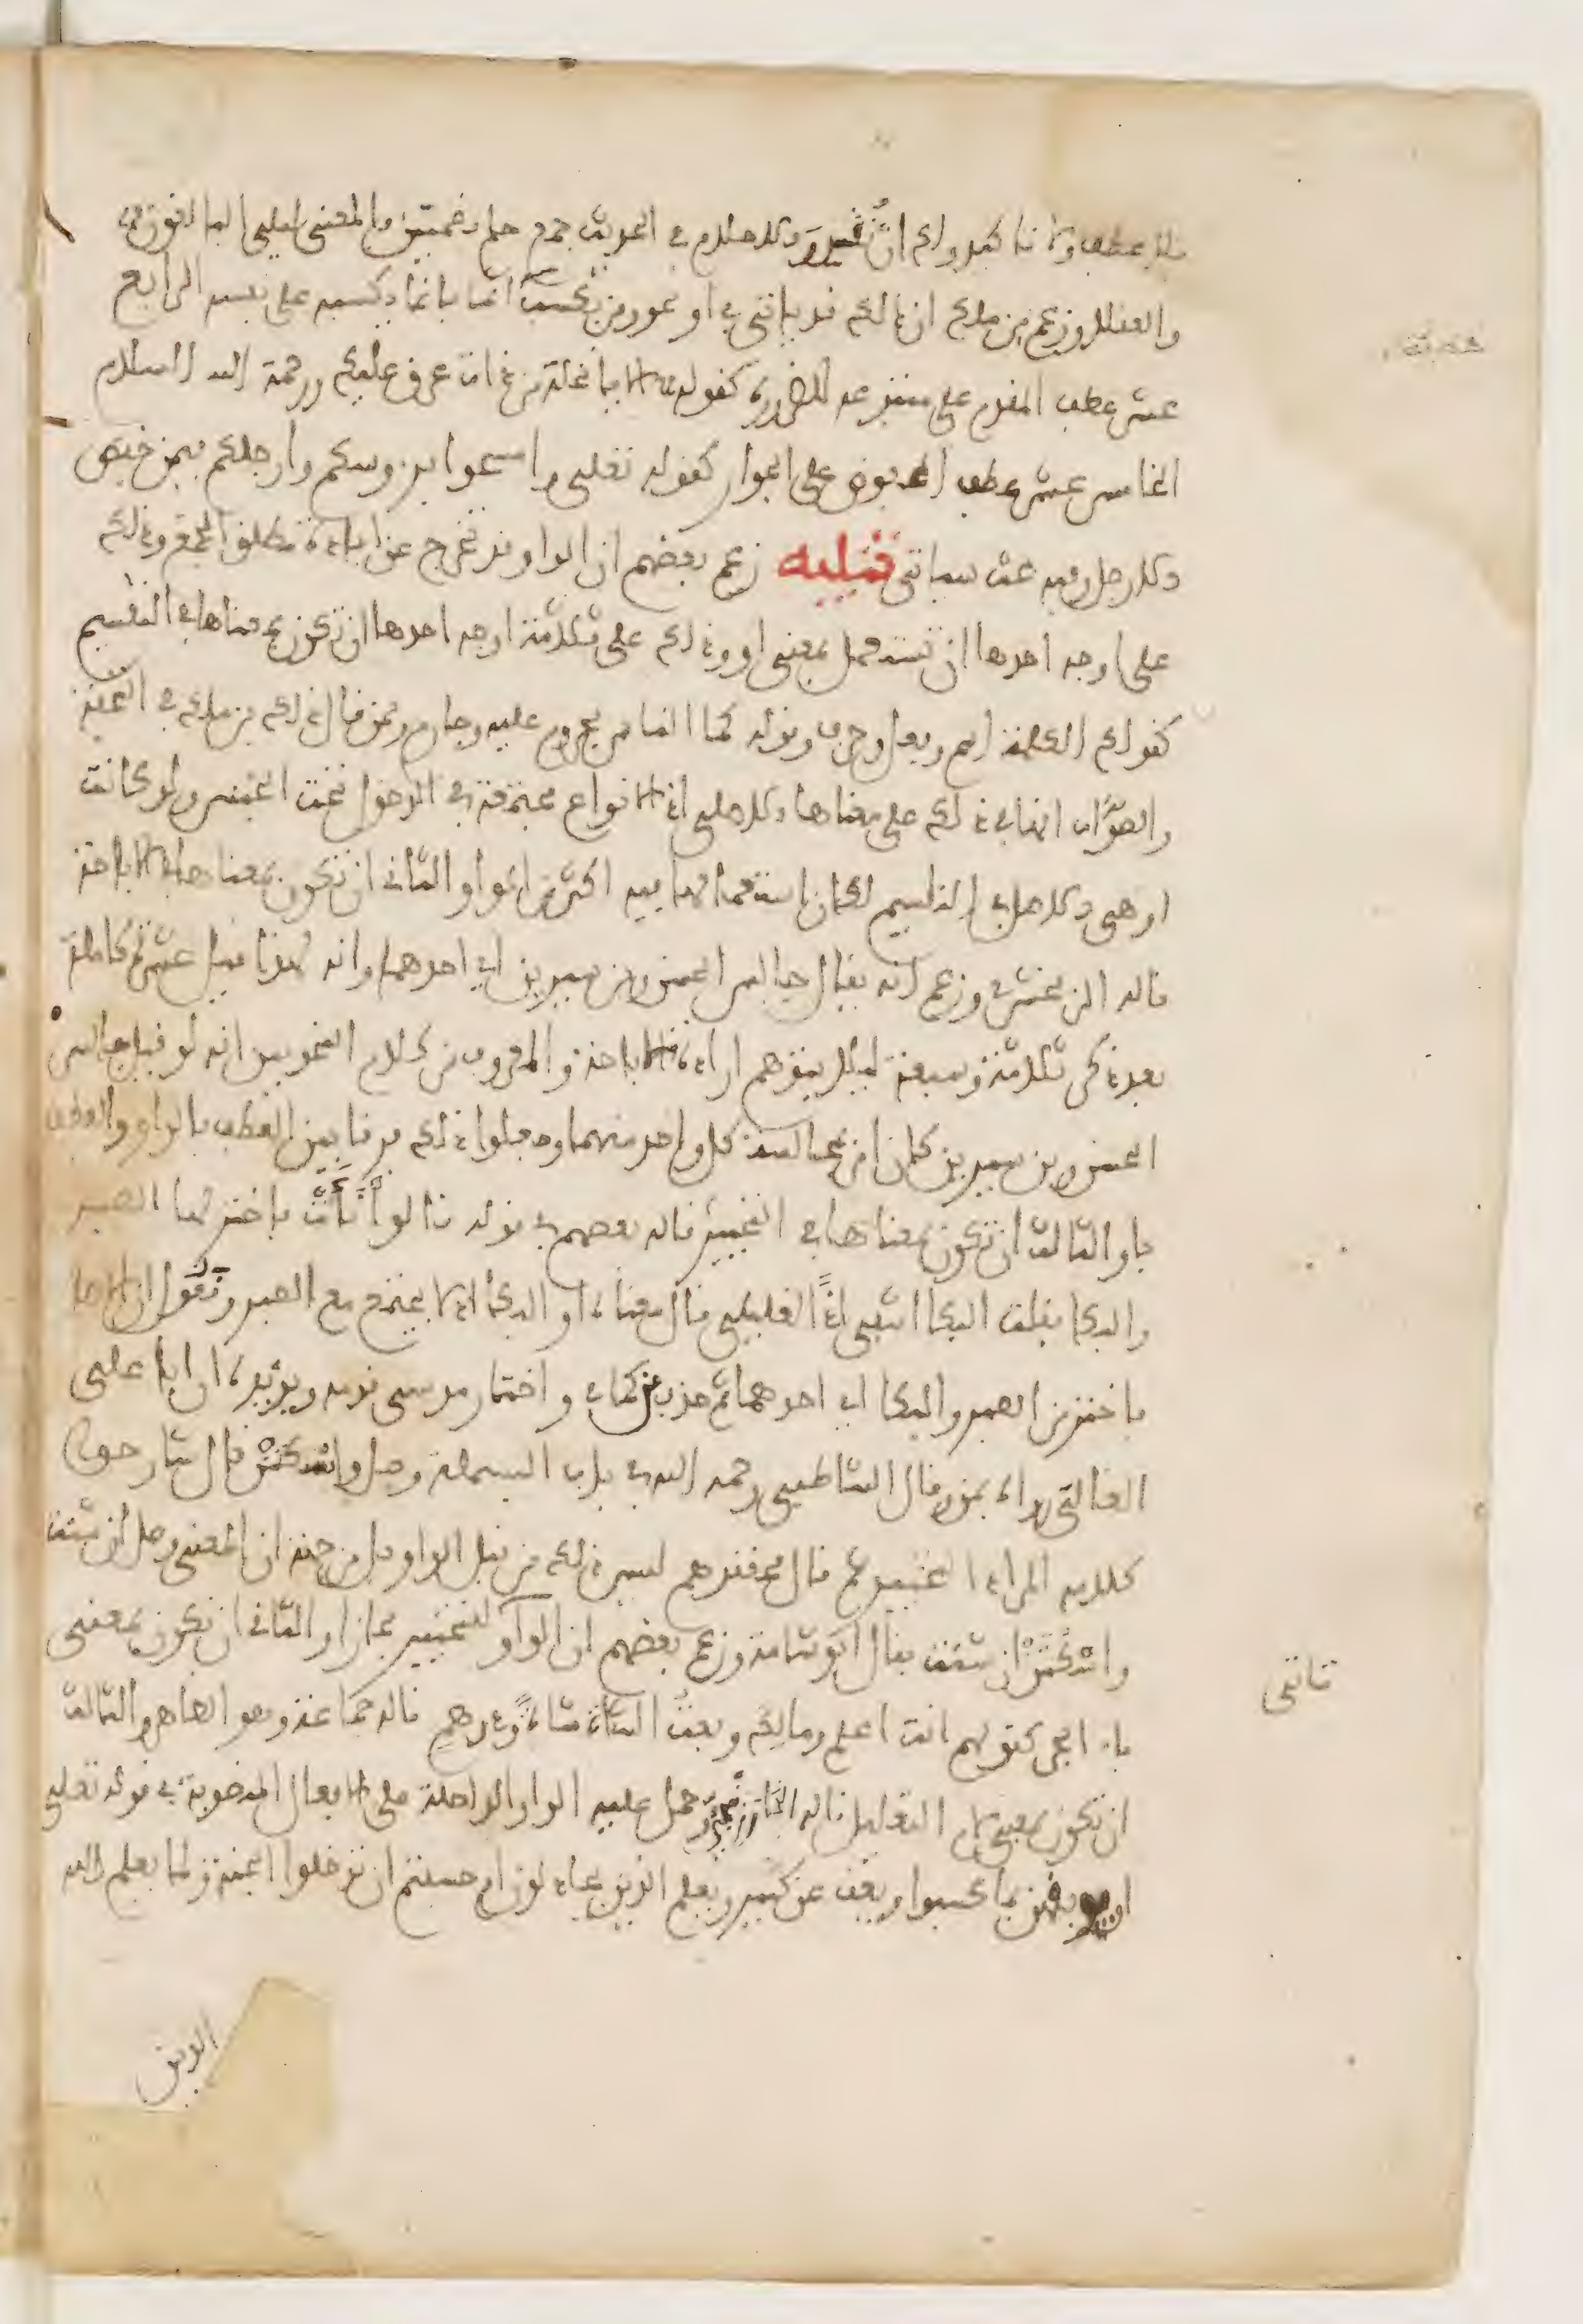 فلا عطف ولا تاكيد ولك ان تُقدر الاحلام في الحديث جمع حلم بضمتين والمعنى ليلني البالغون
والعقلا وزعم بن ملك ان ذلك قد ياتي في او نحو ومن يكسب اثما فانما يكسبه على نفسه الرابع
عشر عطف المقدم على متبوعه للضرورة كقوله الا يا نخلة من ذات عرق عليك ورحمة الله السلام
الخامس عشر عطف المخفوض على الجوار كقوله تعلى وامسحوا برءوسكم وارجلكم فيمن خفض
الارجل وفيه بحث سياتي تنبيه زعم بعضهم ان الواو قد تخرج عن افادة مطلق الجمع وذلك
على اوجه احدها ان تستعمل بمعنى او وذلك على ثلاثة اوجه احدها ان تكون بمعناها في التقسيم
كقولك الكلمة اسم وفعل وحرف وقوله كما الناس مجروم عليه وجارم وممن قال ذلك بن ملك في التحفة
والصواب انها في ذلك على معناها الاصلي اذ الانواع مجتمعة في الدخول تحت الجنس ولو كانت
او هي الاصل في التقسيم لكان استعمالها فيه اكثر من الواو والثاني ان تكون بمعناها في الاباحة
قاله الزمخشري وزعم انه يقال جالس الحسن وبن سيرين اي احدهما وانه لهذا قيل عشرة كاملة
بعد ذكر ثلاثة وسبعة ليلا يتوهم ارادة الاباحة والمعروف من كلام النحويين انه لو قيل جالس
الحسن وبن سيرين كان امر بمجالسة كل واحد منهما وجعلوا ذلك فرقا بين العطف بالواو والعطف
باو والثالث ان تكون بمعناها في التخيير قاله بعضهم في قوله قالوا نأت فاختر لها الصبر
والبكا فقلت البكا اشفى اذا لغليلي قال معناه او البكا اذ لا يجتمع مع الصبر ونقول ان الاصل
فاختر من الصبر والبكا اي احدهما ثم حذف من كما في واختار موسى قومه ويؤيده ان ابا علي
القالي رواه بمن وقال الشاطبي رحمه الله في باب البسملة وصل واسكتن قال شارحوا
كلامه المراد التخيير ثم قال محققوهم ليس ذلك من قبل الواو بل من جهة ان المعنى وصل ان شئت
واسكتن ان شئت فقال ابو شامة وزعم بعضهم ان الواو للتخيير مجازا والثاني ان تكون بمعنى
باء الجر كقولهم انت اعلم ومالك وبعت الشاة شاة ودرهم قاله جماعة وهو ظاهر والثالث
ان تكون بمعنى لام التعليل قاله الخارزنجي وحمل عليه الواو الداخلة على الافعال المنصوبة في قوله تعلى
او يوبقهن بما كسبوا ويعف عن كثير ويعلم الذين يجادلون ام حسبتم ان تدخلوا الجنة ولما يعلم الله
الذين